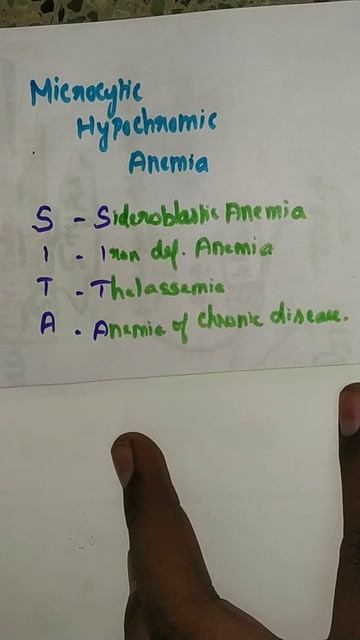 Microcytic
Hypochromic
Anemia
S - Sideroblastic Anemia
I - Iron def. Anemia
T - Thalassemia
A - Anemia of chronic disease.